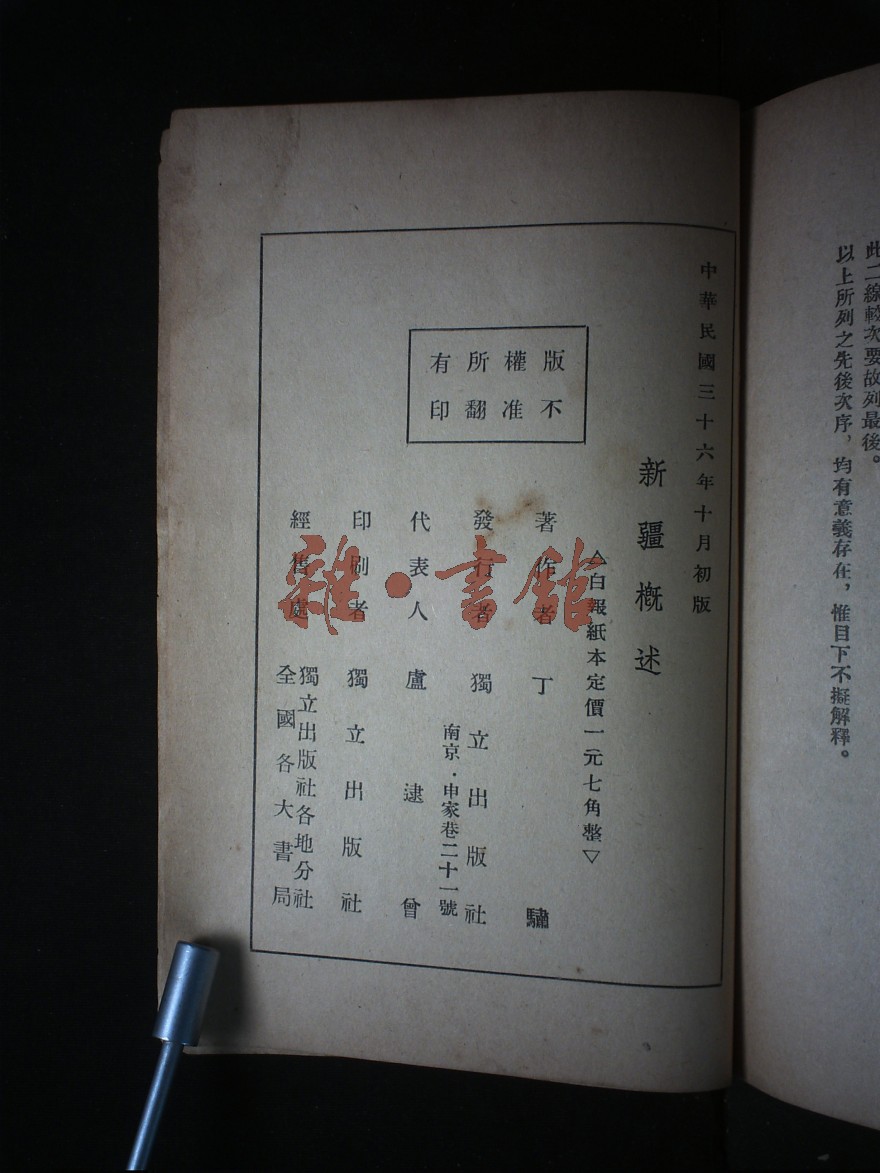 此二線較次要故列最後。
以上所列之先後次序，均有意義存在，惟目下不擬解釋。
中華民國三十六年十月初版
新疆概述
△白報紙本定價一元七角整▽
版權所有
不准翻印
著作者 丁驌
發行者 獨立出版社
南京·申家巷二十一號
代表人 盧逮曾
印刷者 獨立出版社
經售處 獨立出版社各地分社
全國各大書局
雜·書館